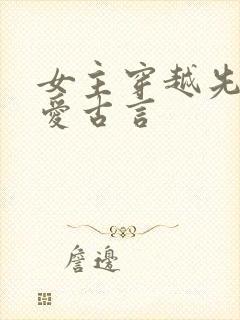 女主穿越先
爱古言
詹邊